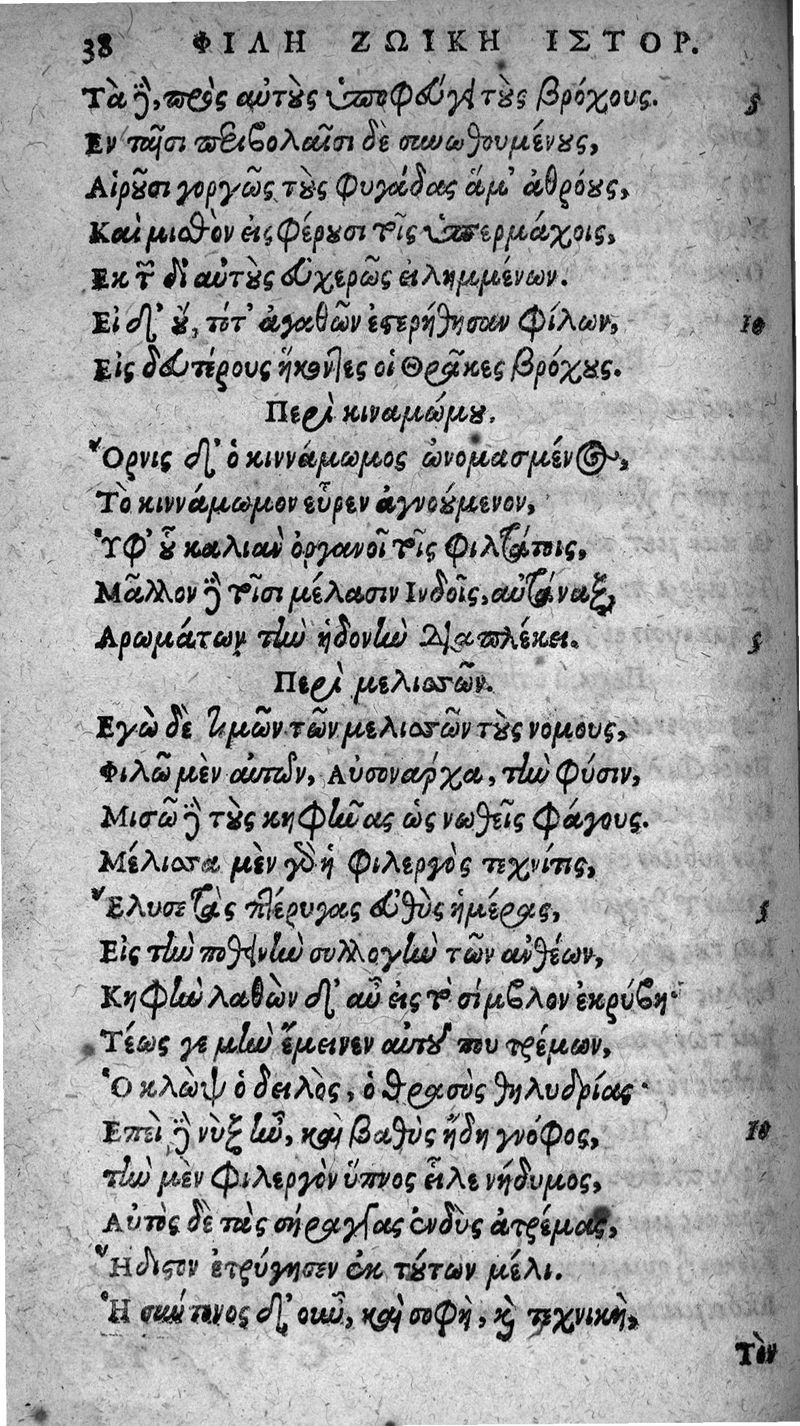 38 ΦΙΛΗ ΖΩΙΚΗ ΙΣΤΟΡ.
Τὰ δὲ, πρὸς αὐτοὺς ὑποφεύγει τοὺς βρόχους. 5
Εν ταῖσι περιβολαῖσι δὲ συνωθουμένους,
Αἱροῦσι γοργῶς τοὺς φυγάδας ἅμ' ἀθρόους,
Καὶ μισθὸν εἰσφέρουσι τοῖς ὑπερμάχοις,
Εκ τῶν δι' αὐτοὺς εὐχερῶς εἰλημμένων.
Εἰ δ' οὔ, τότ' ἀγαθῶν ἐστερήθησαν φίλων, 10
Εἰς δευτέρους ἥκοντες οἱ Θρᾶκες βρόχους.
Περὶ κιναμώμου.
Ὄρνις δ' ὁ κιννάμωμος ὠνομασμένος,
Τὸ κιννάμωμον εὗρεν ἀγνούμενον,
Ὑφ' οὗ καλιὰν ὀργανοῖ τοῖς φιλτάτοις,
Μᾶλλον δὲ τοῖσι μέλασιν Ινδοῖς, αὐτάναξ,
Αρωμάτων τὴν ἡδονὴν διαπλέκει. 5
Περὶ μελισσῶν.
Εγὼ δὲ τιμῶν τῶν μελισσῶν τοὺς νομους,
Φιλῶ μὲν αὐτῶν, Αὐσοναρχα, τὴν φύσιν,
Μισῶ δὲ τοὺς κηφῆνας ὡς νωθεῖς φάγους.
Μέλισσα μὲν γὰρ ἡ φιλεργὸς τεχνίτις,
Ἔλυσε τὰς πτέρυγας εὐθὺς ἡμέρας, 5
Εἰς τὴν ποθεινὴν συλλογὴν τῶν ἀνθέων,
Κηφὴν λαθὼν δ' αὖ εἰς τὸ σίμβλον ἐκρύβη·
Τέως γε μὴν ἔμεινεν αὐτοῦ που τρέμων,
Ὁ κλὼψ ὁ δειλὸς, ὁ θρασὺς θηλυδρίας·
Επεὶ δὲ νὺξ ἦν, καὶ βαθὺς ἤδη γνόφος, 10
τὴν μὲν φιλεργὸν ὕπνος εἷλε νήδυμος,
Αὐτὸς δὲ τὰς σήραγγας ἐνδὺς ἀτρέμας,
Ἥδιστον ἐτρύγησεν ἐκ τούτων μέλι.
Ἡ δ' οὖν, καὶ σοφὴ, καὶ τεχνικὴ,
Τὸν